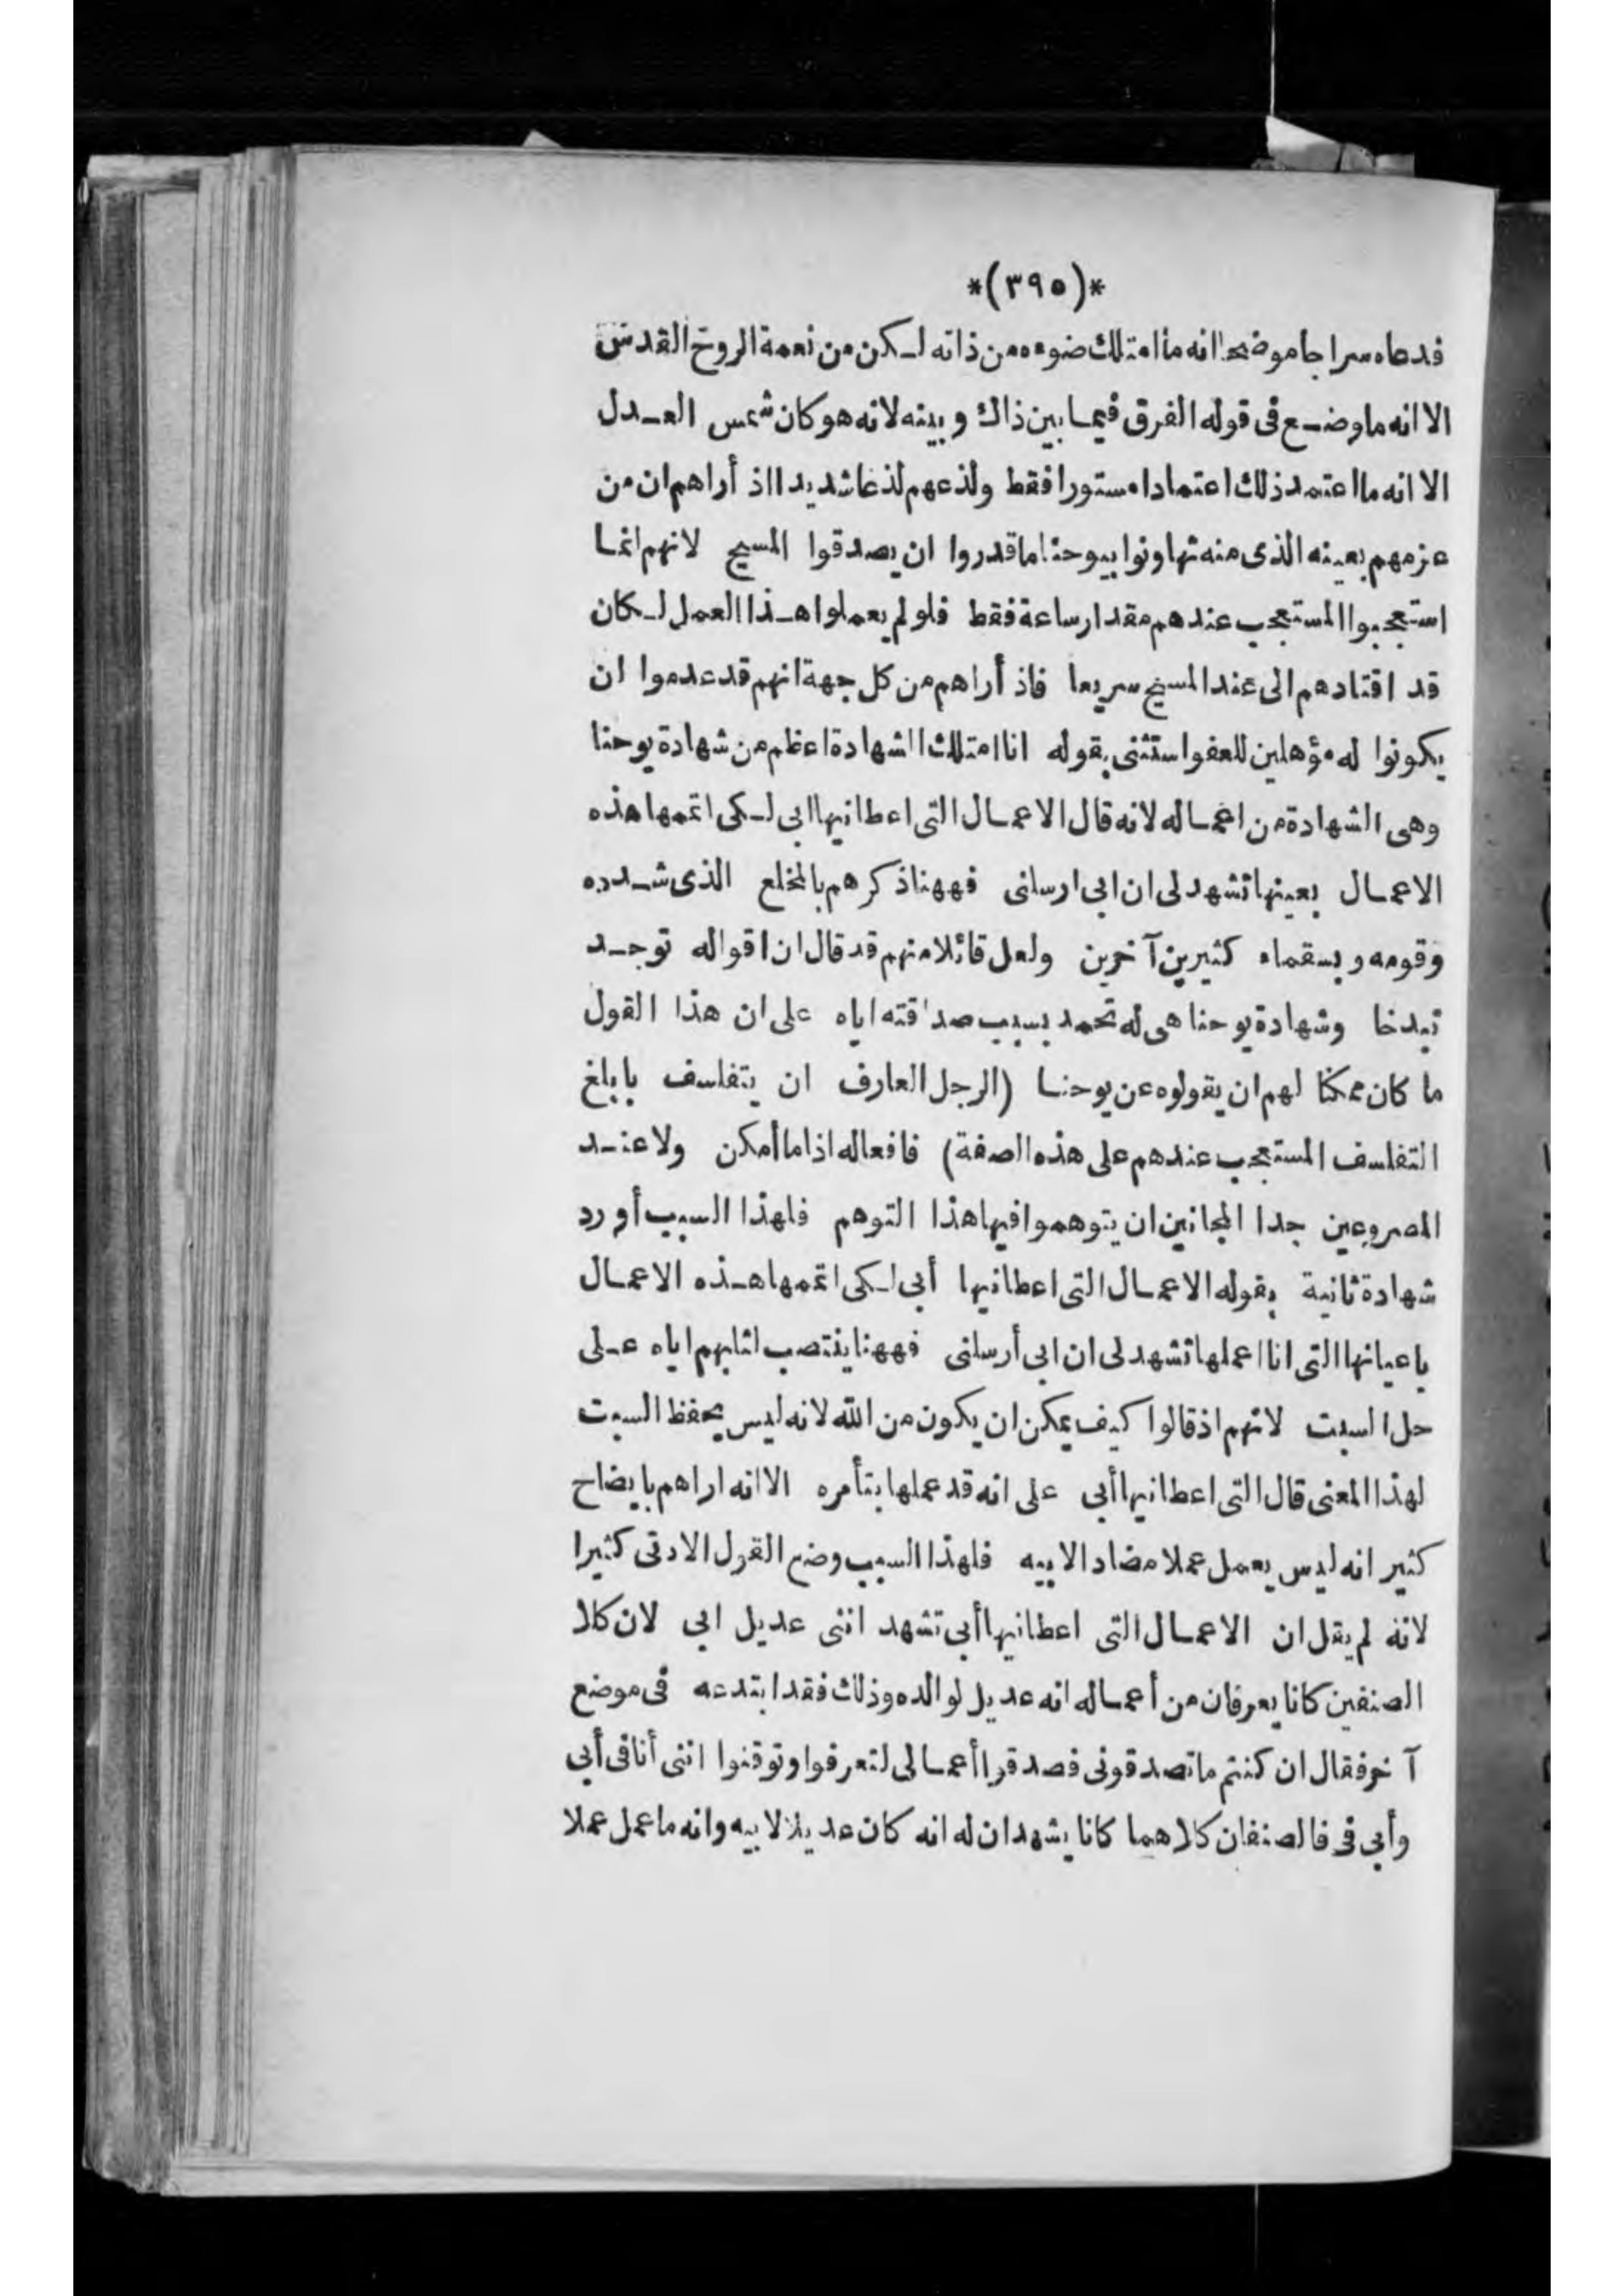 *(٣٩٥)*
فدعاه سراجا موضحا انه ما امتلك ضوءه من ذاته لكن من نعمة الروح القدس
الا انه ما وضع فى قوله الفرق فيما بين ذاك وبينه لانه هو كان شمس العدل
الا انه ما اعتمد ذلك اعتمادا مستورا فقط ولذعهم لذعا شديدا اذ أراهم ان من
عزمهم بعينه الذى منه تهاونوا بيوحنا ما قدروا ان يصدقوا المسيح لانهم انما
استعجبوا المستعجب عندهم مقدار ساعة فقط فلو لم يعملوا هذا العمل لكان
قد اقتادهم الى عند المسيح سريعا فاذ أراهم من كل جهة انهم قد عدموا ان
يكونوا له مؤهلين للعفو استثنى بقوله انا امتلك الشهادة اعظم من شهادة يوحنا
وهى الشهادة من اعماله لانه قال الاعمال التى اعطانيها ابى لكى اتمها هذه
الاعمال بعينها تشهد لى ان ابى ارسلنى فههنا ذكرهم بالمخلع الذى شدده
وقومه وبسقماء كثيرين آخرين ولعل قائلا منهم قد قال ان اقواله توجد
تبدخا وشهادة يوحنا هى له تحمد بسبب صداقته اياه على ان هذا القول
ما كان ممكنا لهم ان يقولوه عن يوحنا (الرجل العارف ان يتفلسف بابلغ
التفلسف المستعجب عندهم على هذه الصفة) فافعاله اذا ما أمكن ولا عند
المصروعين جدا المجانين ان يتوهموا فيها هذا التوهم فلهذا السبب أورد
شهادة ثانية بقوله الاعمال التى اعطانيها أبى لكى اتمها هذه الاعمال
باعيانها التى انا اعملها تشهد لى ان ابى أرسلنى فههنا ينتصب لثلبهم اياه على
حل السبت لانهم اذ قالوا كيف يمكن ان يكون من الله لانه ليس يحفظ السبت
لهذا المعنى قال التى اعطانيها أبى على انه قد عملها بتأمره الا انه اراهم بايضاح
كثير انه ليس يعمل عملا مضادا لابيه فلهذا السبب وضع القول الادنى كثيرا
لانه لم يقل ان الاعمال التى اعطانيها أبى تشهد اننى عديل ابى لان كلا
الصنفين كانا يعرفان من أعماله انه عديل لوالده وذلك فقد ابتدعه فى موضع
آخر فقال ان كنتم ما تصدقونى فصدقوا أعمالى لتعرفوا وتوقنوا اننى أنا فى أبى
وأبى فى فالصنفان كلاهما كانا يشهدان له انه كان عديلا لابيه وانه ما عمل عملا